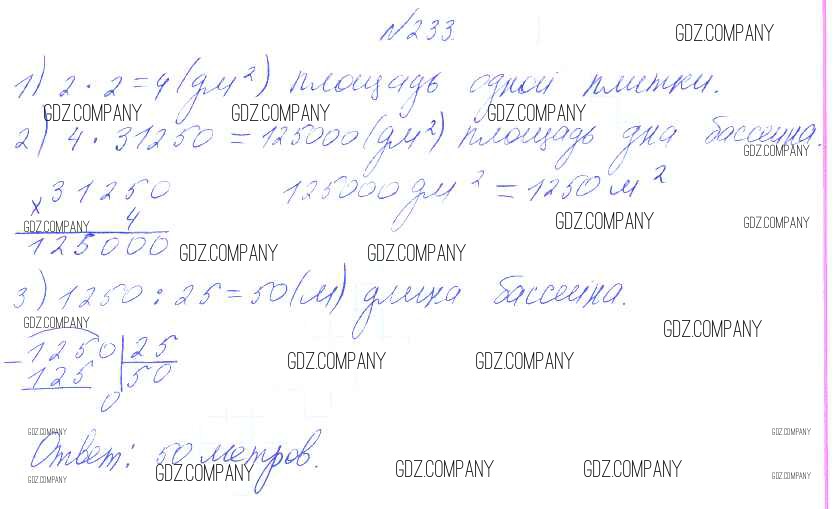 №233.
GDZ.COMPANY
1) 2 · 2 = 4 (дм²) площадь одной плитки.
GDZ.COMPANY GDZ.COMPANY GDZ.COMPANY
2) 4 · 31250 = 125000 (дм²) площадь дна бассейна.
GDZ.COMPANY
× 31250 125000 дм² = 1250 м²
4
GDZ.COMPANY GDZ.COMPANY GDZ.COMPANY
125000
GDZ.COMPANY GDZ.COMPANY
3) 1250 : 25 = 50 (м) длина бассейна.
GDZ.COMPANY GDZ.COMPANY
− 1250 | 25
125 | 50
GDZ.COMPANY GDZ.COMPANY
0
GDZ.COMPANY GDZ.COMPANY
Ответ: 50 метров.
GDZ.COMPANY GDZ.COMPANY GDZ.COMPANY GDZ.COMPANY GDZ.COMPANY